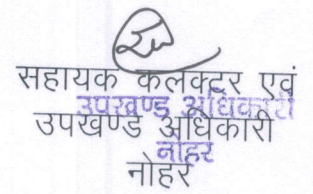 सहायक कलेक्टर एवं
उपखण्ड अधिकारी
उपखण्ड अधिकारी
नोहर
नोहर